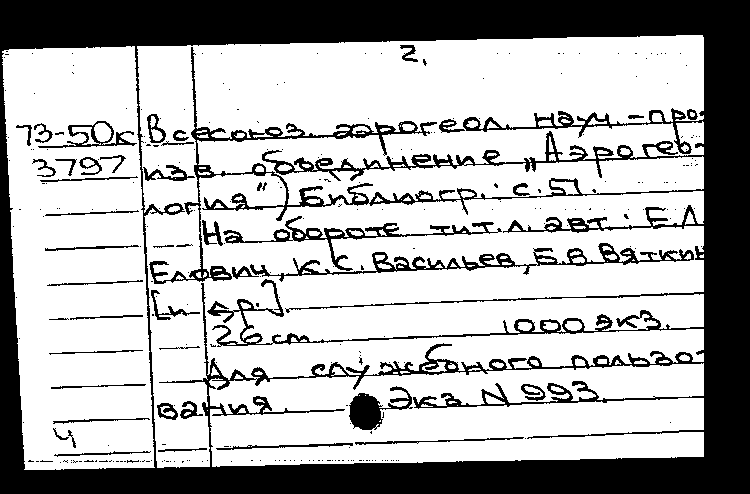 2.
73-50к Всесоюз. аэрогеол. науч.-про-
3797 изв. объединение „Аэрогео-
логия") Библиогр.: с. 51.
На обороте тит. л. авт.: Е.Л.
Елович, К.С. Васильев, Б.В. Вяткин
[и др.].
26 см. 1000 экз.
Для служебного пользо-
вания. Экз. N 993.
4